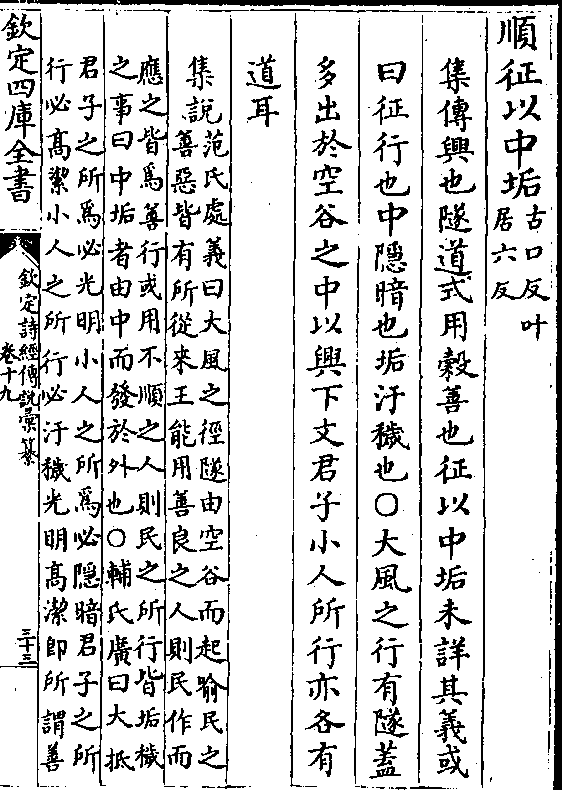 順征以中垢古口反叶
居六反
集傳興也隧道式用榖善也征以中垢未詳其義或
曰征行也中隱暗也垢汙穢也○大風之行有隧蓋
多出於空谷之中以興下文君子小人所行亦各有
道耳
集說范氏處義曰大風之徑隧由空谷而起喻民之
善惡皆有所從來王能用善良之人則民作而
應之皆為善行或用不順之人則民之所行皆垢穢
之事曰中垢者由中而發於外也○輔氏廣曰大抵
君子之所為必光明小人之所為必隱暗君子之所
行必高潔小人之所行必汙穢光明高潔即所謂善
欽定四庫全書
欽定詩經傳說彙纂
卷十九
三十三